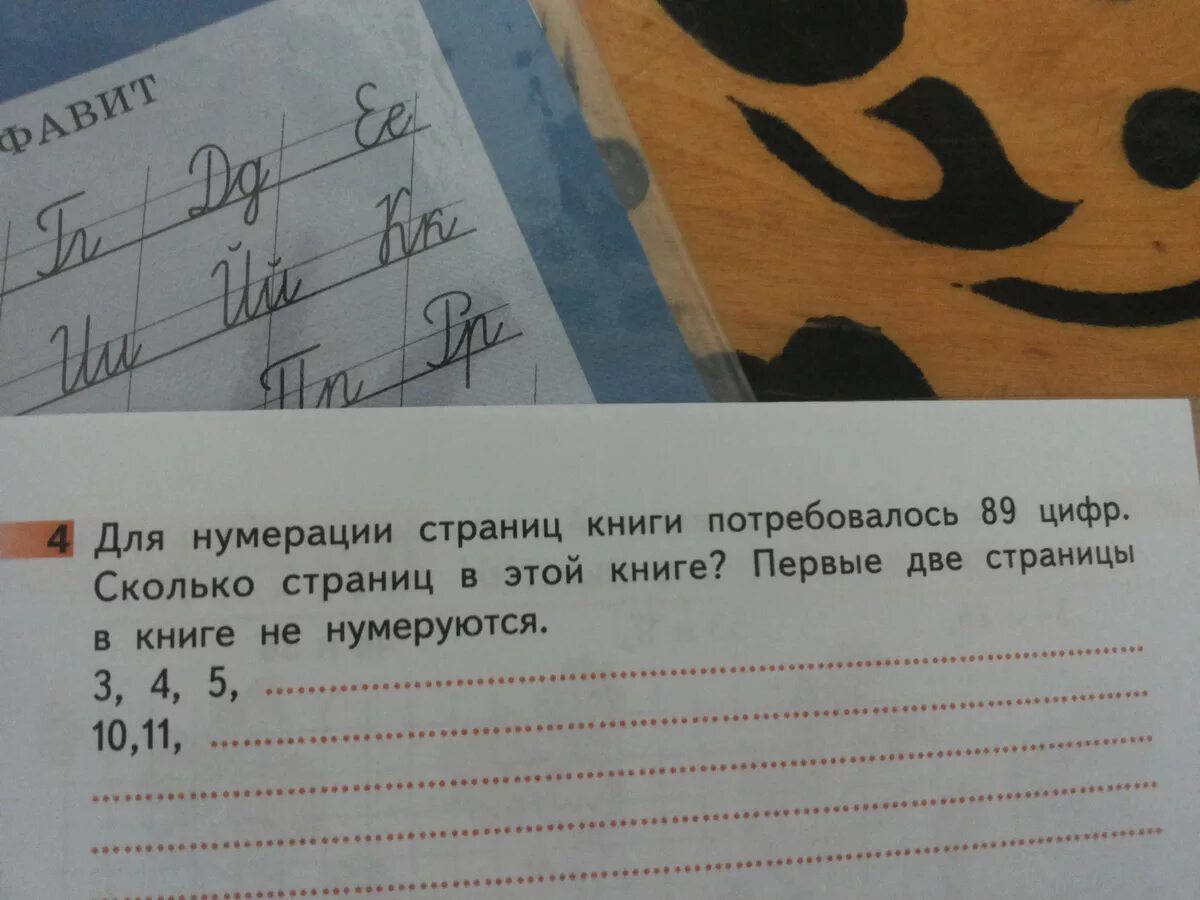 ФАВИТ
Гг Дд Ее
Ии Йй Кк
Пп Рр
4 Для нумерации страниц книги потребовалось 89 цифр.
Сколько страниц в этой книге? Первые две страницы
в книге не нумеруются.
3, 4, 5,
10,11,